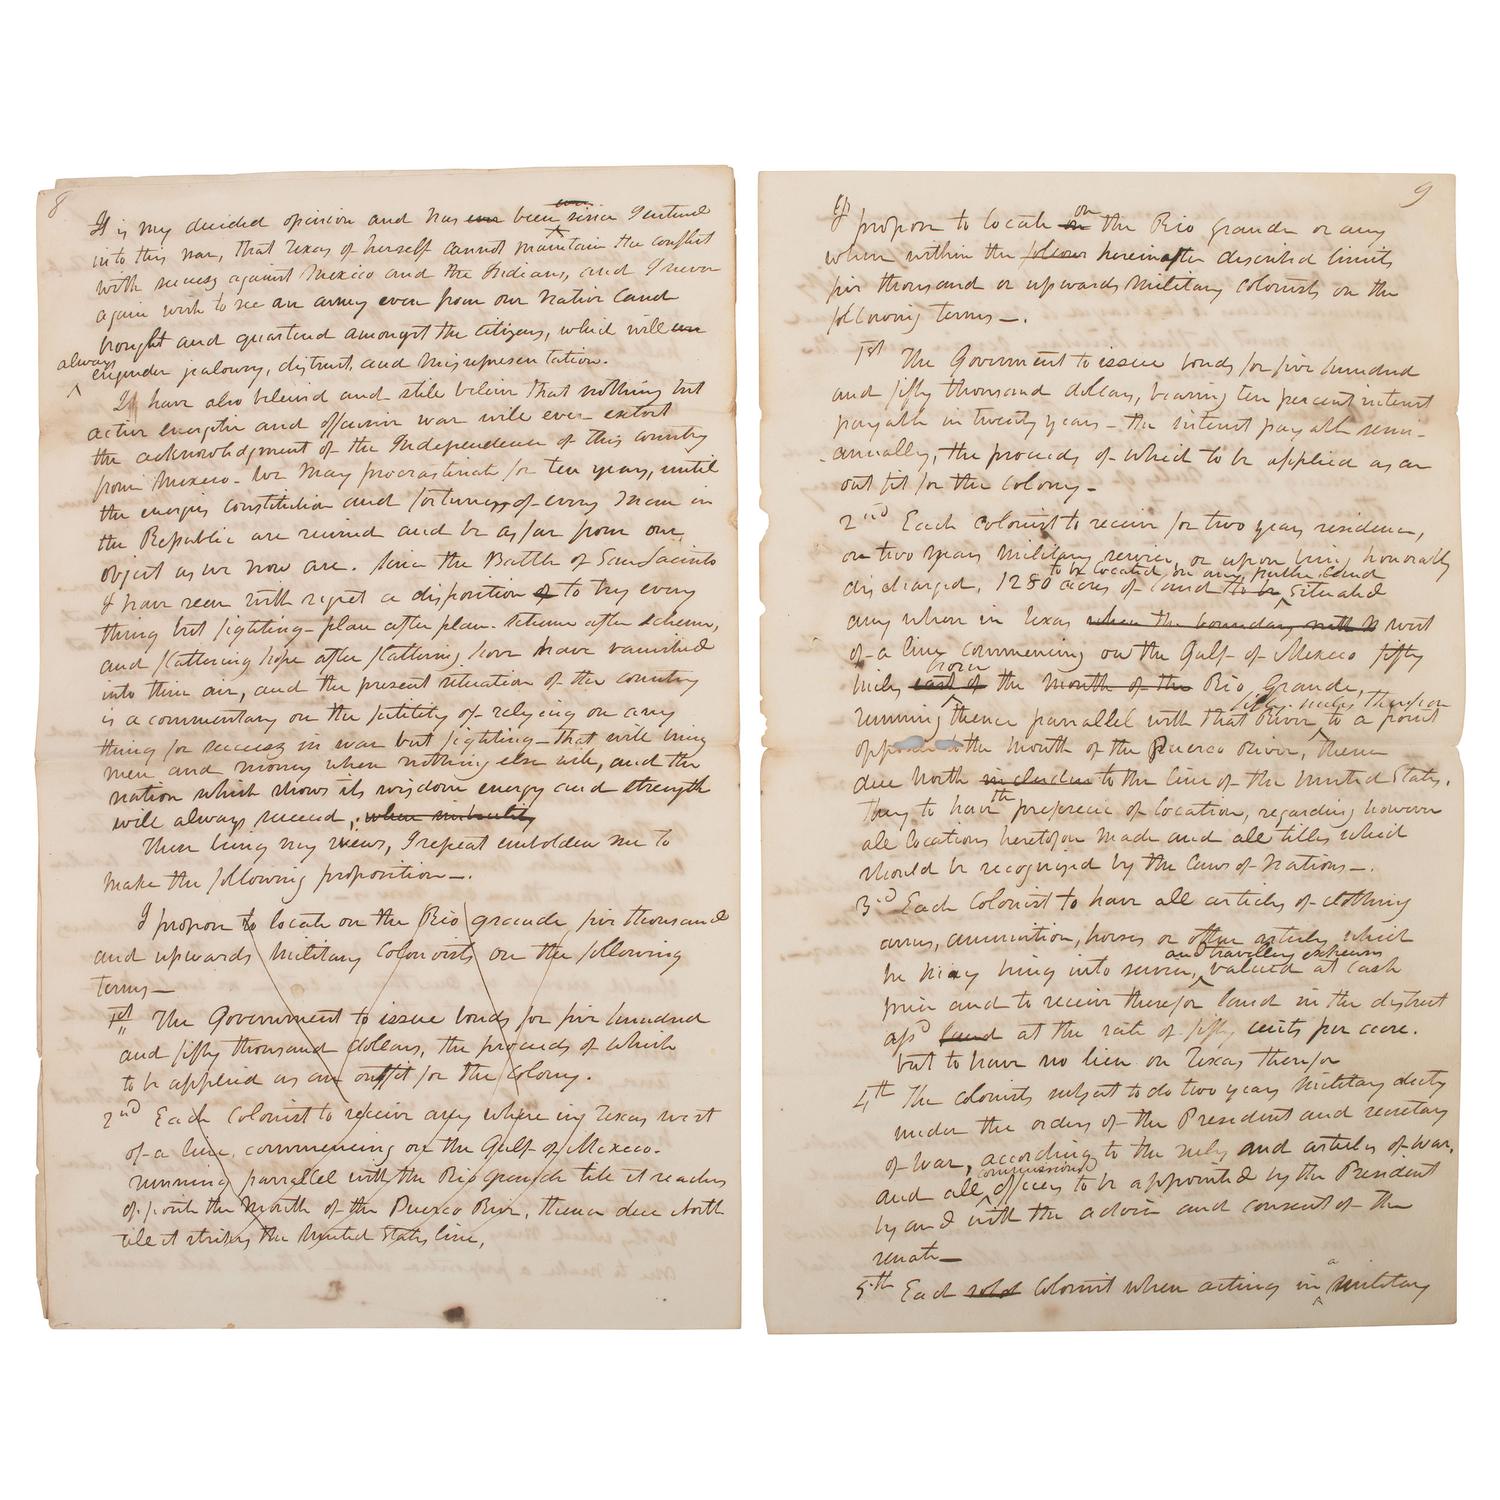 8
It is my decided opinion and has ever been ever since I entered
into this war, that Texas of herself cannot maintain the conflict
with success against Mexico and the Indians, and I never
again wish to see an army even from our native land
brought and quartered amongst the citizens, which will
always engender jealousy, distrust, and misrepresentation.
I have also beleived and still beleive that nothing but
active energetic and offensive war will ever extort
the acknowledgment of the Independence of this country
from Mexico. We may procrastinate for ten years, until
the energies constitution and fortunes of every man in
the Republic are ruined and be as far from our
object as we now are. Since the Battle of San Jacinto
I have seen with regret a disposition to try every
thing but fighting - plan after plan. scheme after scheme,
and flattering hope after flattering hope have vanished
into thin air, and the present situation of the country
is a commentary on the futility of relying on any
thing for success in war but fighting - that will bring
men and money when nothing else will, and the
nation which shows its wisdom energy and strength
will always succeed, when imbecility
These being my views, I repeat embolden me to
make the following proposition -.
I propose to locate on the Rio grande five thousand
and upwards Military Colonists on the following
terms -
1st The Government to issue bonds for five hundred
and fifty thousand dollars, the proceeds of which
to be applied as an outfit for the Colony.
2nd Each Colonist to receive any where in Texas west
of a line, commencing on the Gulf of Mexico.
running parrallel with the Rio grande till it reaches
opposite the Mouth of the Puerco River, thence due North
till it strikes the United States line,
9
I propose to locate on the Rio grande or any
where within the follow hereinafter described limits
five thousand or upwards Military colonists on the
following terms -.
1st The Government to issue bonds for five hundred
and fifty thousand dollars, bearing ten percent interest
payable in twenty years - the interest payable semi-
annually, the proceeds of which to be applied as an
out fit for the colony -
2nd Each Colonist to receive for two years residence,
or two years military service, or upon being honorably
to be located on any public land
discharged, 1280 acres of land to be situated
any where in Texas when the boundary with west
of a line commencing on the Gulf of Mexico fifty
miles east of from the Mouth of the Rio Grande,
fifty miles therefrom
running thence parrallel with that River to a point
the Mouth of the Puerco River, thence
due North to the line of the United States.
They to have the preference of location, regarding however
all locations heretofore made and all titles which
should be recognised by the laws of Nations -.
3rd Each Colonist to have all articles of clothing
arms, ammunition, horses or other articles which
and travelling expenses
he may bring into service, valued at cash
price and to receive therefor land in the district
afsd land at the rate of fifty cents per acre.
but to have no lien on Texas therefor
4th The colonists subject to do two years Military duty
under the orders of the President and secretary
of War, according to the rules and articles of War.
commissioned
and all officers to be appointed by the President
by and with the advice and consent of the
senate -
5th Each sold Colonist when acting in a military